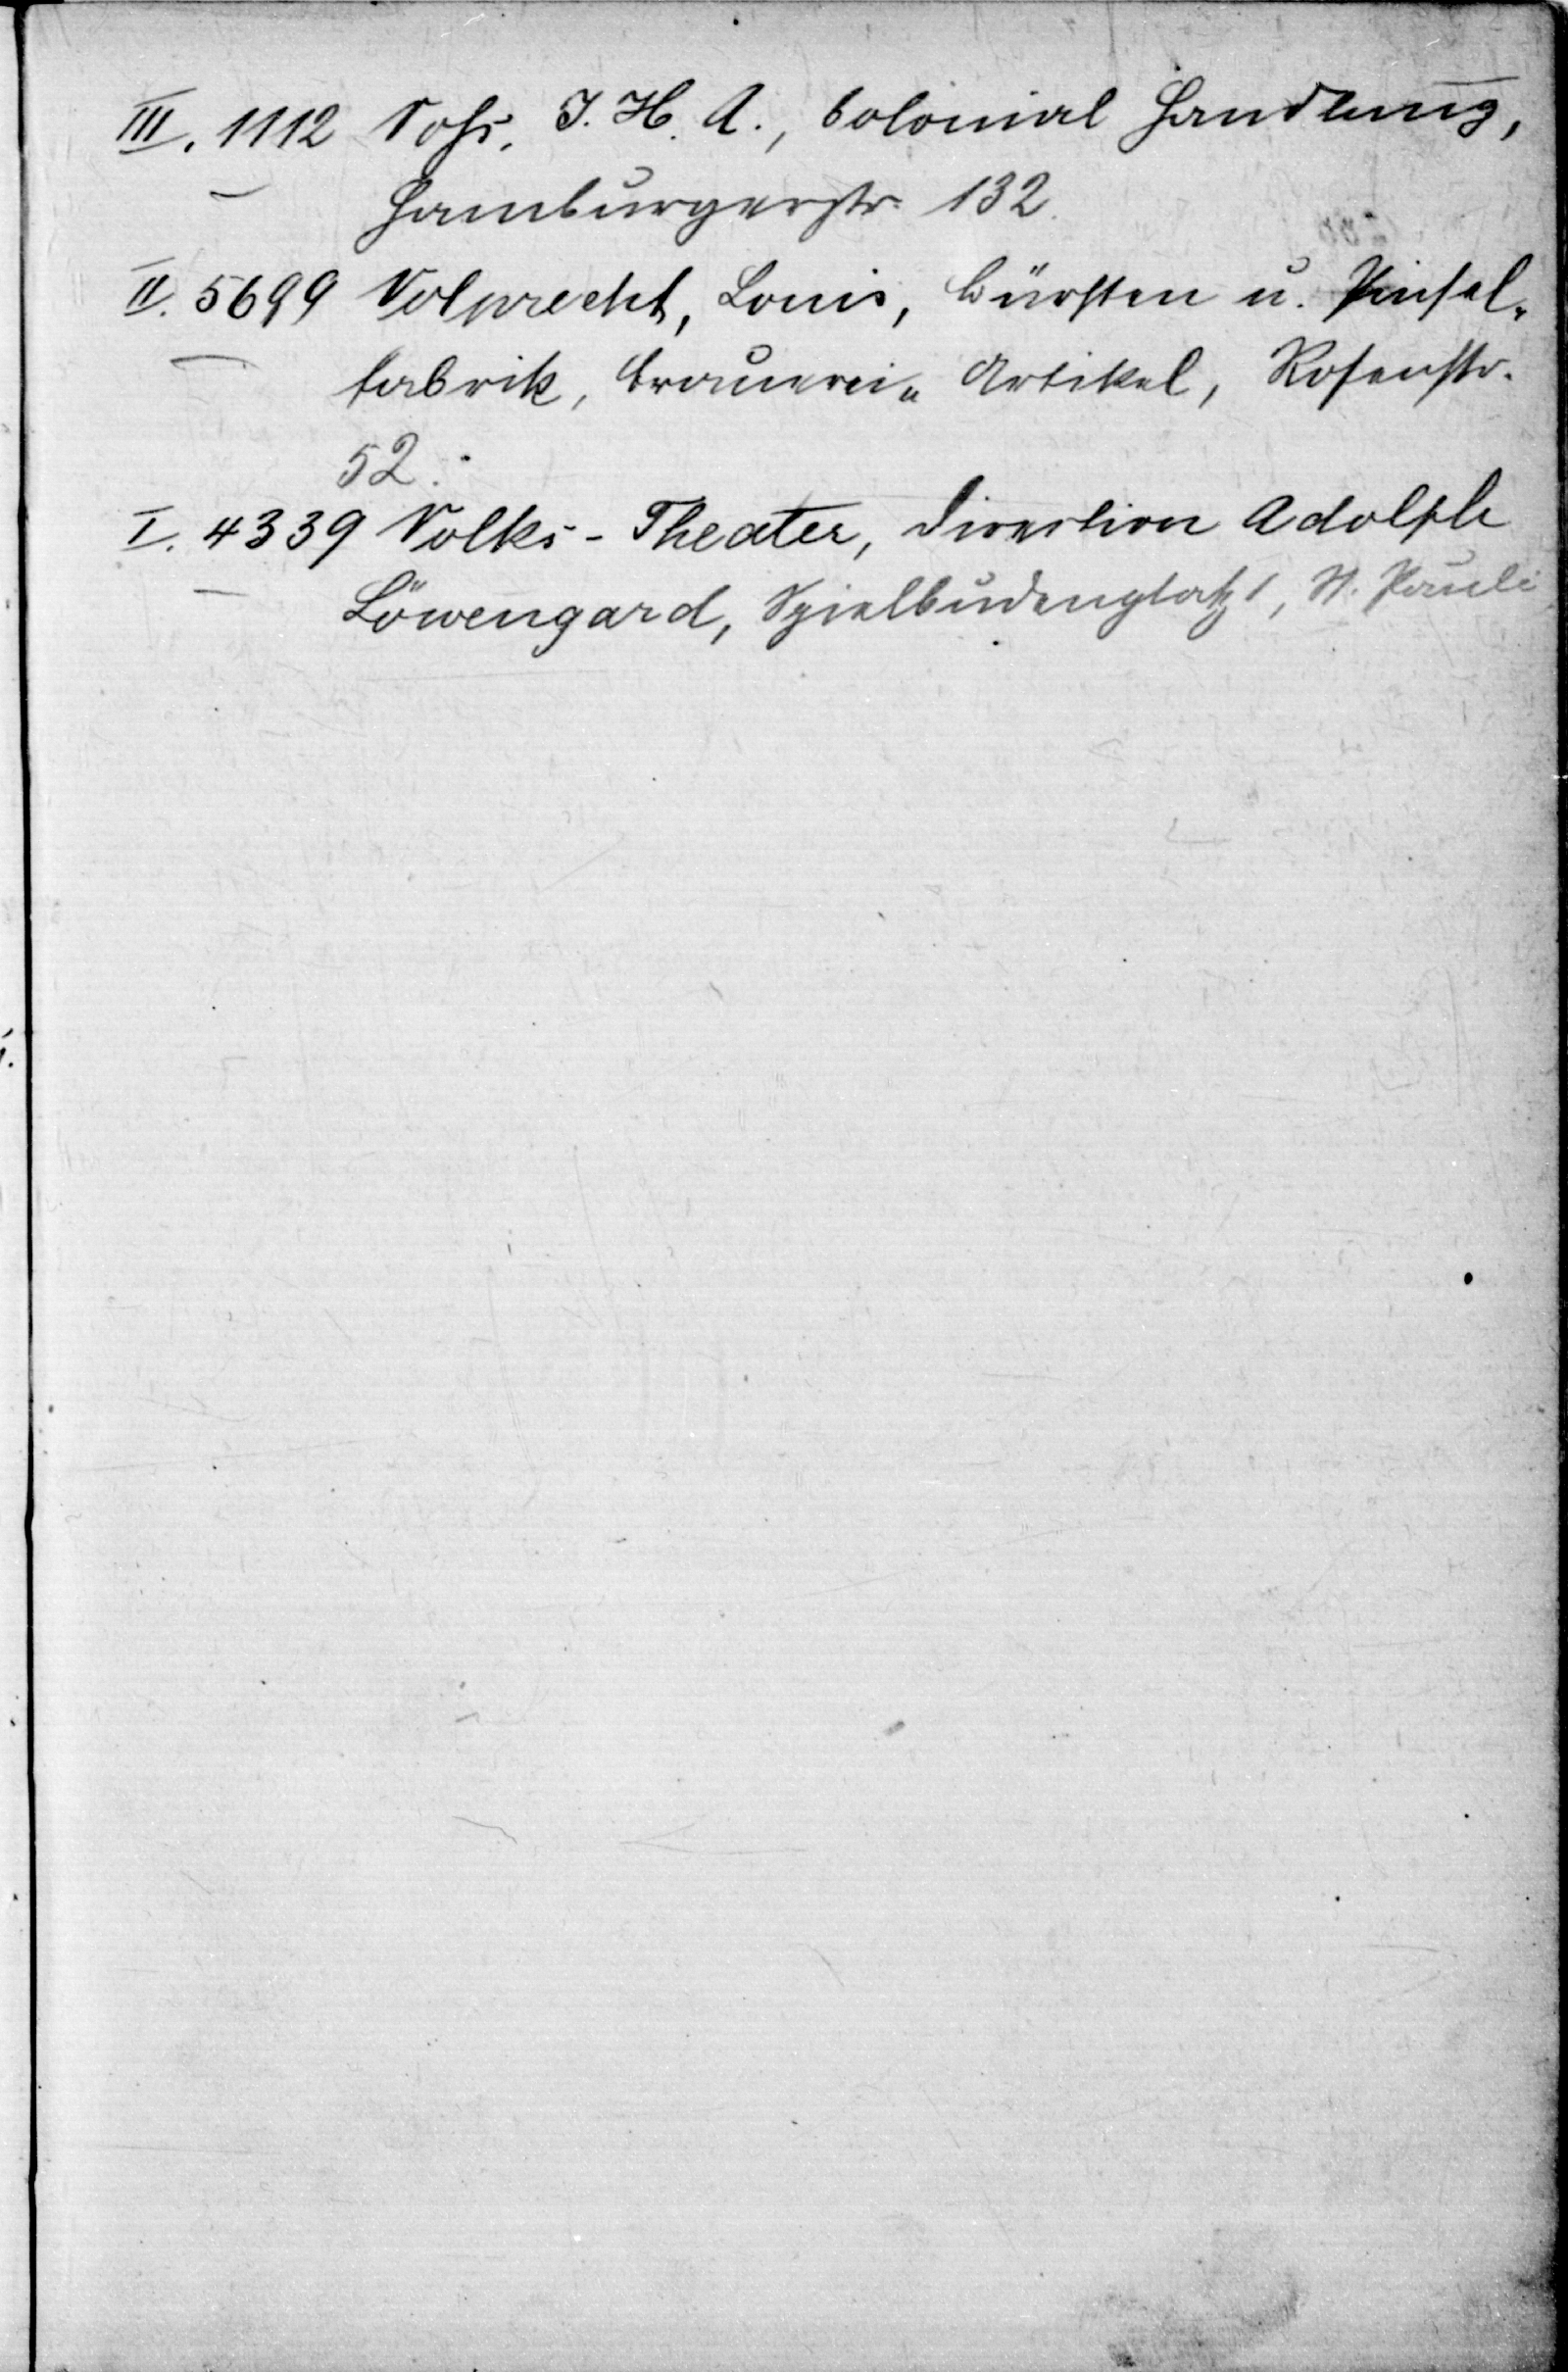 III. 1112 Vohs, J. H. A., Colonial Handlung,
Hamburgerstr. 132.
II. 5699 Volprecht, Louis, Bürsten u. Pinsel-
fabrik, Brauerei-Artikel, Rosenstr.
52.
I. 4339 Volks-Theater, Direction Adolph
Löwengard, Spielbudenplatz 1, St. Pauli